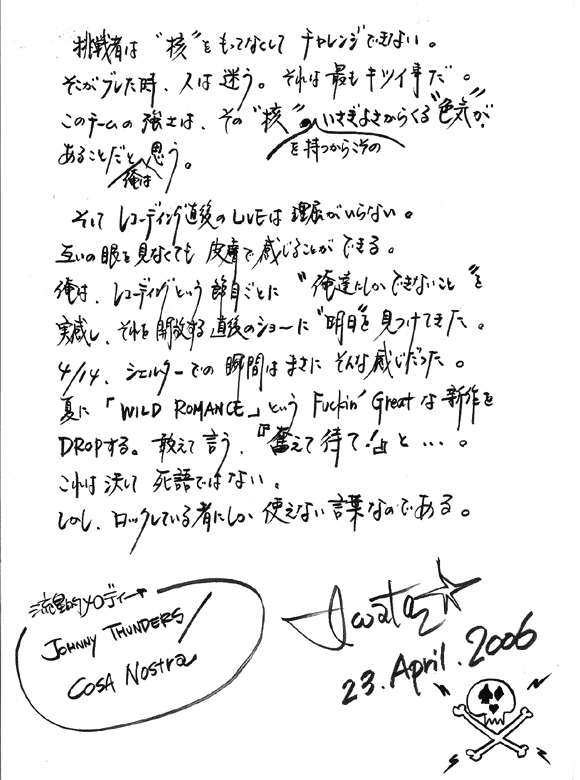 挑戦者は“核”をもってなくして チャレンジできない。
そこがブレた時、人は迷う。それは最もキツイ事だ。
このチームの強さは、その“核”のいさぎよさからくる“色気”が、
を持つからこその
あることだと思う。
俺は
そして レコーディング直後のLIVEは理屈がいらない。
互いの眼を見なくても 皮膚で感じることができる。
俺は、レコーディングという節目ごとに “俺達にしかできないこと”を
実感し、それを開放する直後のショーに“明日”を見つけてきた。
4/14、シェルターでの瞬間はまさにそんな感じだった。
夏に「WILD ROMANCE」という Fuckin' Great な新作を
DROPする。敢えて言う、『奮えて待て!』と…。
これは決して 死語ではない。
しかし、ロックしている者にしか 使えない言葉なのである。
流星的メロディー→
JOHNNY THUNDERS/
COSA NOSTRA
23. April. 2006